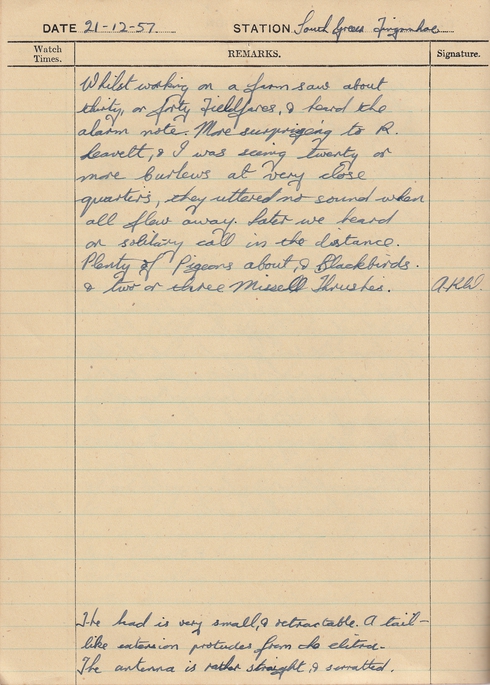 DATE 21-12-57 STATION South Green Fingrinhoe
Watch Times. REMARKS. Signature.
Whilst working on a farm saw about
thirty, or forty Fieldfares, & heard the
alarm note. More surprising to R.
Leavett, & I was seeing twenty or
more Curlews at very close
quarters, they uttered no sound when
all flew away. Later we heard
on solitary call in the distance.
Plenty of Pigeons about, & Blackbirds.
& two or three Missell Thrushes.
The head is very small, & retractable. A tail-
like extension protudes from the elitra.
The antenna is rather straight, & serratted.